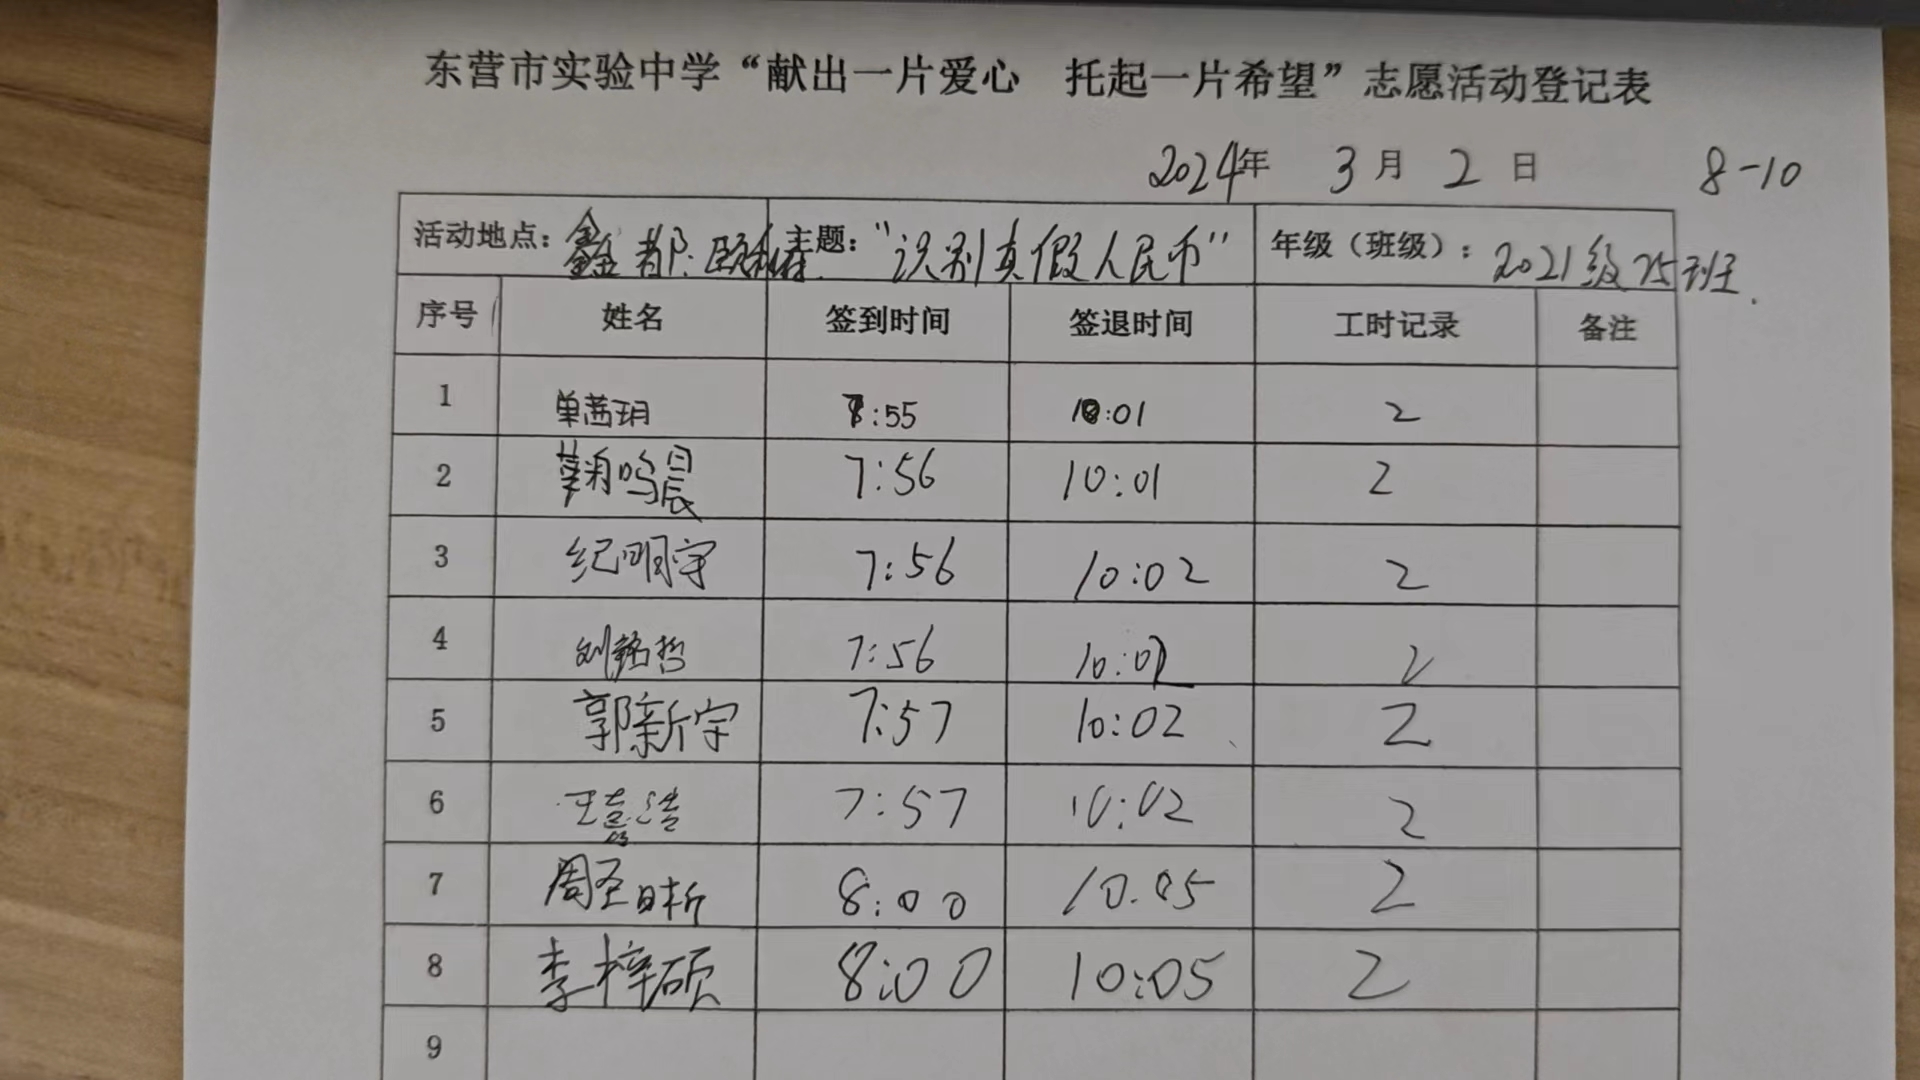 东营市实验中学“献出一片爱心 托起一片希望”志愿活动登记表
2024年 3月 2日 8-10
活动地点：鑫都 主题：“识别真假人民币” 年级（班级）：2021级25班.
序号 姓名 签到时间 签退时间 工时记录 备注
1 单茜玥 7:55 10:01 2
2 鞠鸣晨 7:56 10:01 2
3 纪明宇 7:56 10:02 2
4 刘铭哲 7:56 10:02 2
5 郭新宇 7:57 10:02 2
6 7:57 10:02 2
7 周圣晰 8:00 10:05 2
8 李梓硕 8:00 10:05 2
9